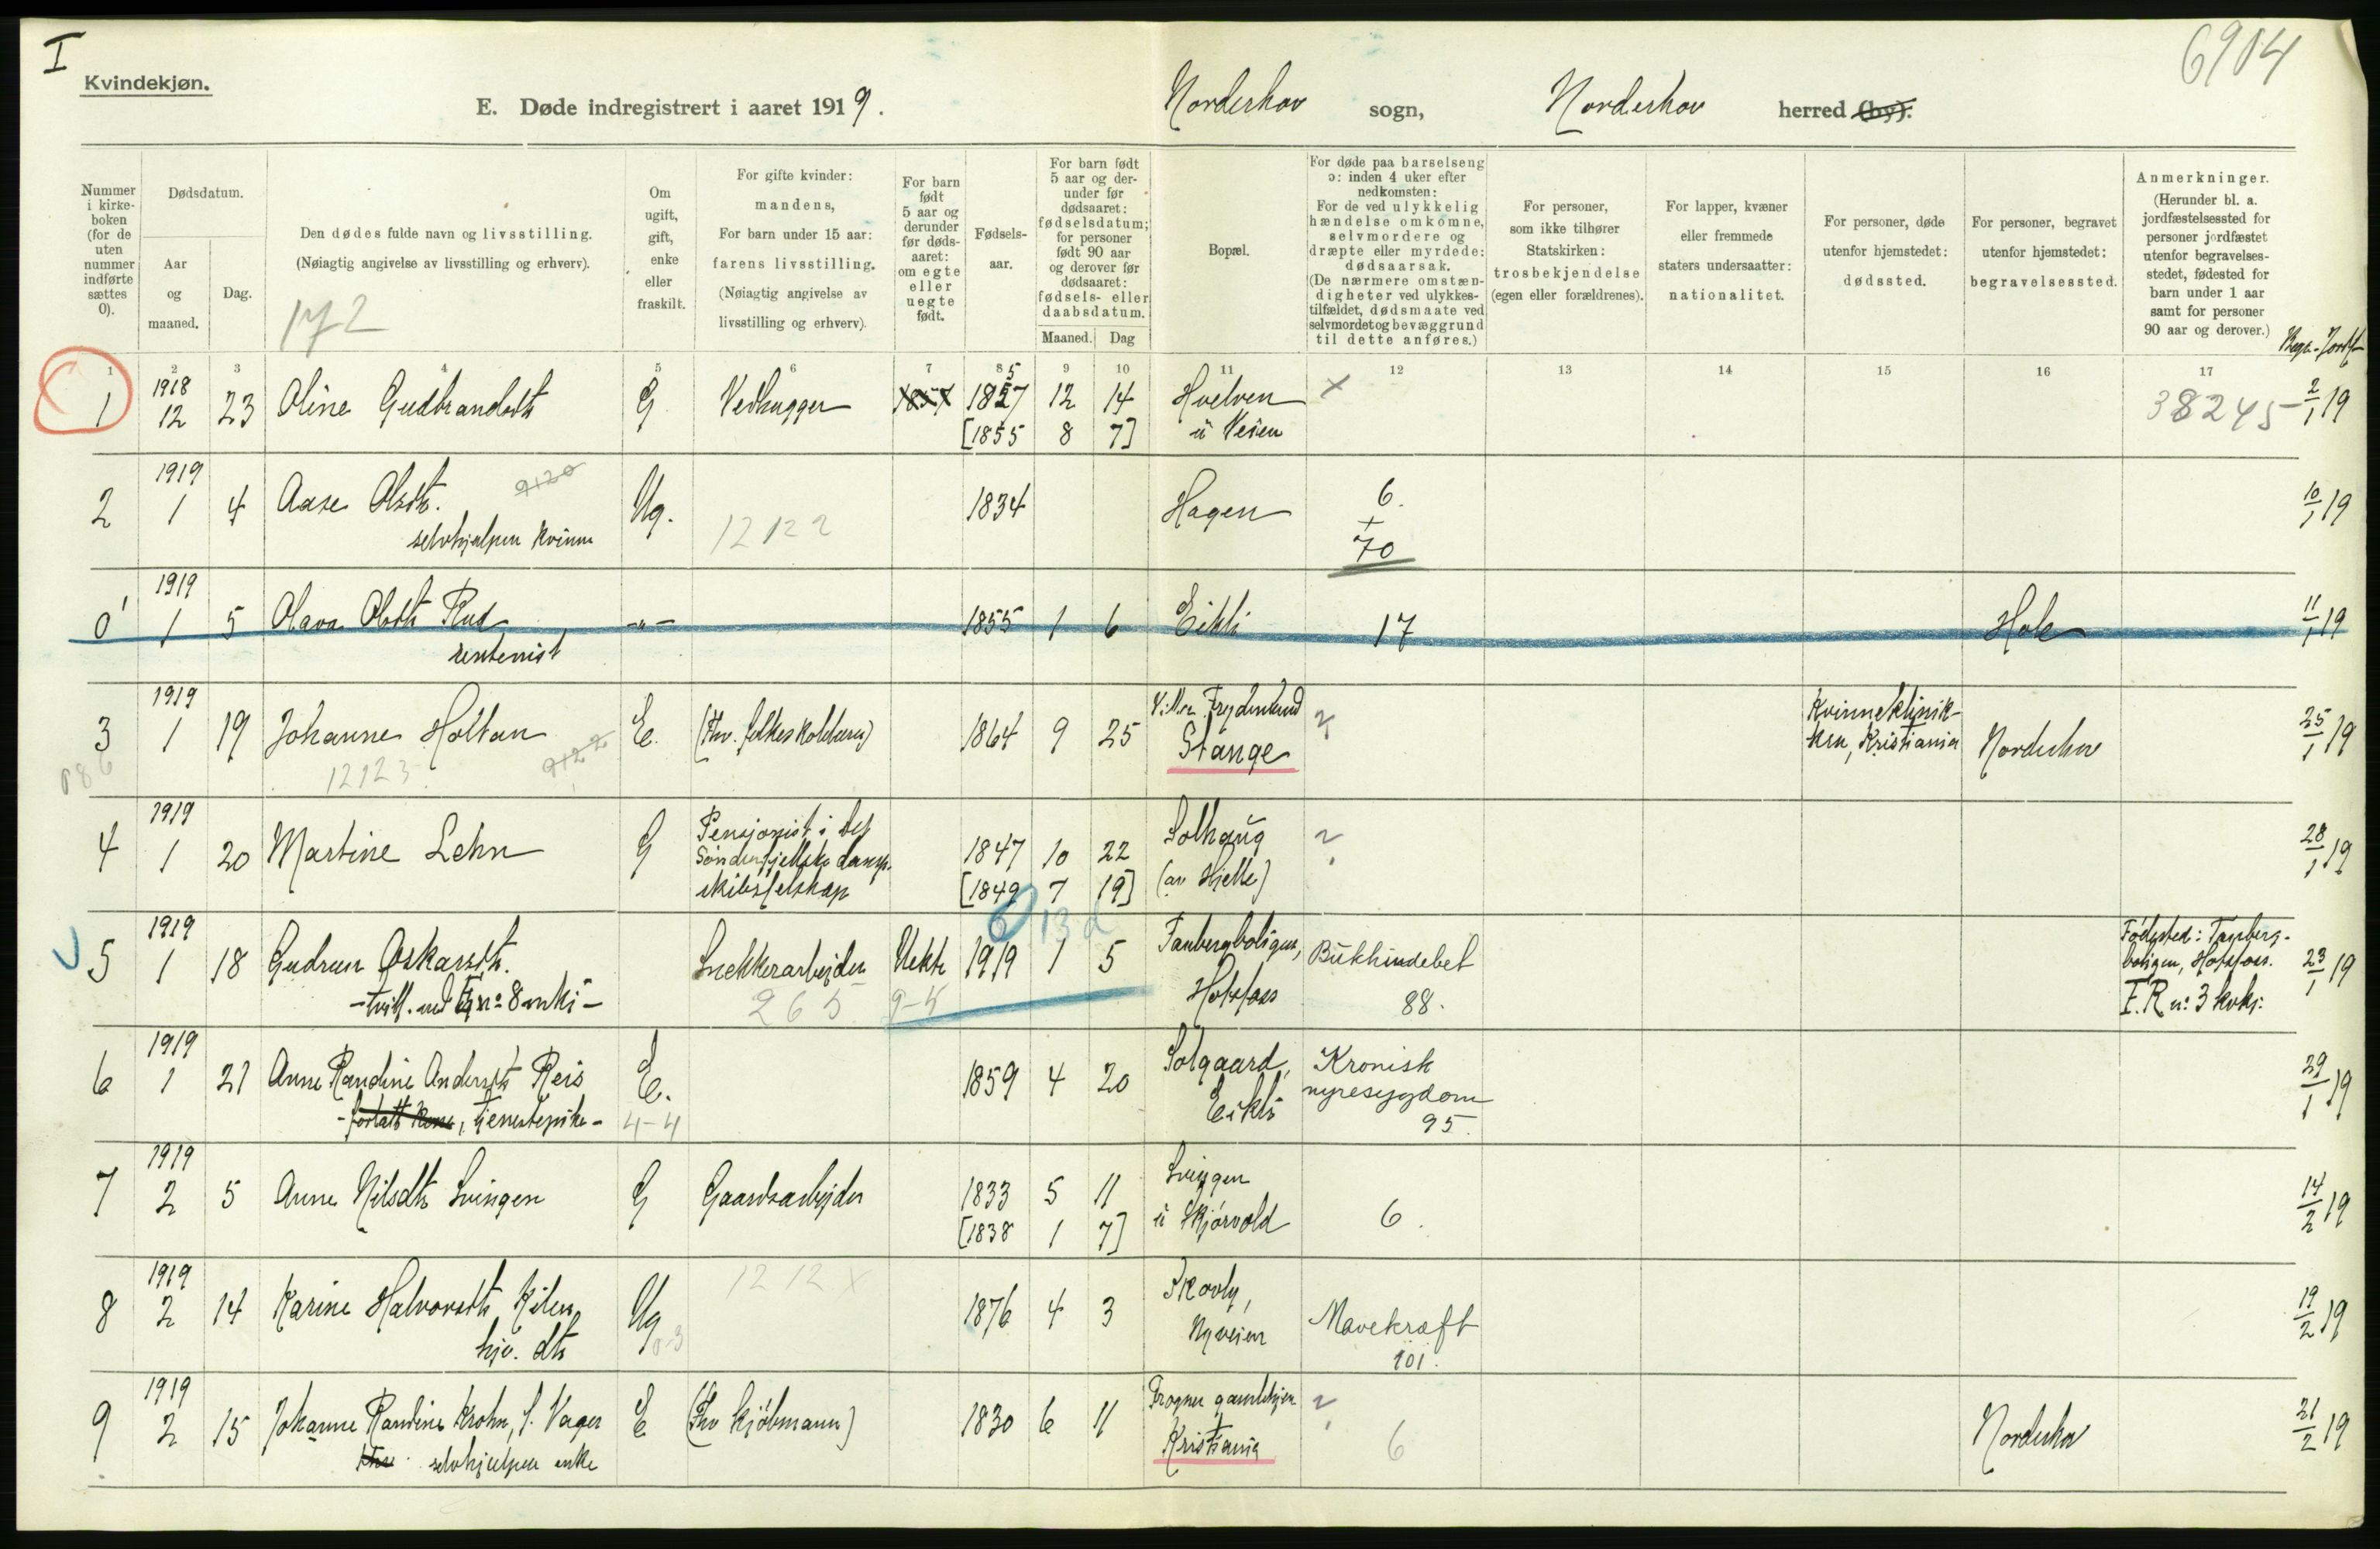 I
6904
Kvindekjøn.
E. Døde indregistrert i aaret 1919. Norderhov sogn, Norderhov herred (by).
Nummer i kirkeboken (for de uten nummer indførte sættes 0).
Dødsdatum.
Aar og maaned.
Dag.
Den dødes fulde navn og livsstilling.
(Nøiagtig angivelse av livsstilling og erhverv).
172
Om ugift, gift, enke eller fraskilt.
For gifte kvinder: mandens,
For barn under 15 aar: farens livsstilling.
(Nøiagtig angivelse av livsstilling og erhverv).
For barn født 5 aar og derunder før dødsaaret: om egte eller uegte født.
Fødselsaar.
For barn født 5 aar og derunder før dødsaaret: fødselsdatum; for personer født 90 aar og derover før dødsaaret: fødsels- eller daabsdatum.
Maaned. Dag
Bopæl.
For døde paa barselseng ɔ: inden 4 uker efter nedkomsten:
For de ved ulykkelig hændelse omkomne, selvmordere og dræpte eller myrdede: dødsaarsak.
(De nærmere omstændigheter ved ulykkestilfældet, dødsmaate ved selvmordet og bevæggrund til dette anføres.)
For personer, som ikke tilhører Statskirken: trosbekjendelse (egen eller forældrenes).
For lapper, kvæner eller fremmede staters undersaatter: nationalitet.
For personer, døde utenfor hjemstedet: dødssted.
For personer, begravet utenfor hjemstedet: begravelsessted.
Anmerkninger.
(Herunder bl. a. jordfæstelsessted for personer jordfæstet utenfor begravelsesstedet, fødested for barn under 1 aar samt for personer 90 aar og derover.)
1 2 3 4 5 6 7 8 9 10 11 12 13 14 15 16 17
1 1918 12 23 Oline Gudbrandsdtr G Vedhugger 1857 1827 12 14 Hvelven x 38245 2/1 19
[1855 8 7] u Veien
2 1919 1 4 Aase Olsdtr. 9120 Ug. 12122 1834 Hagen 6. + 70 10/1 19
selvhjulpen kvinne
0 1919 1 5 Olava Olsdtr Rud -"- 1855 1 6 Eikli 17 Hole 11/1 19
rentenist
3 1919 1 19 Johanne Holtan E. (Fhv. folkeskolelærer) 1864 9 25 Villa Frydenlund Stange ? Kvinneklinikken, Kristiania Norderhov 25/1 19
12123 9122
4 1919 1 20 Martine Lehn G Pensjonist i det Søndenfjelske dampskibsselskap 1847 10 22 Solhaug ? 28/1 19
[1849 7 19] (av Hjelle)
5 1919 1 18 Gudrun Oskarsdtr. Snekkerarbejder Uekte 1919 1 5 Tanbergboligen, Hofsfoss 88. Fødested: Tanbergboligen, Hofsfoss. F.R nº 3 kvkj: 23/1 19
265 9-5 13 d
6 1919 1 21 Anne Randine Andersdtr Reis E. 1859 4 20 Solgaard, Eikli Kronisk nyresygdom 95. 29/1 19
tjenestepike - 4-4
7 1919 2 5 Anne Nilsdtr Svingen G Gaardsarbejder 1833 5 11 Svingen 6. 14/2 19
[1838 1 7] u Skjørvold
8 1919 2 14 Karine Halvorsdtr Kilen Ug 1212 x 1876 4 3 Skovly, Nyveien Mavekræft 101. 19/2 19
hjv. dtr
9 1919 2 15 Johanne Randine Krohn, f. Vager E (Fhv kjøbmann) 1830 6 11 Frogner gamlehjem Kristiania ? 6 Norderhov 21/2 19
selvhjulpen enke